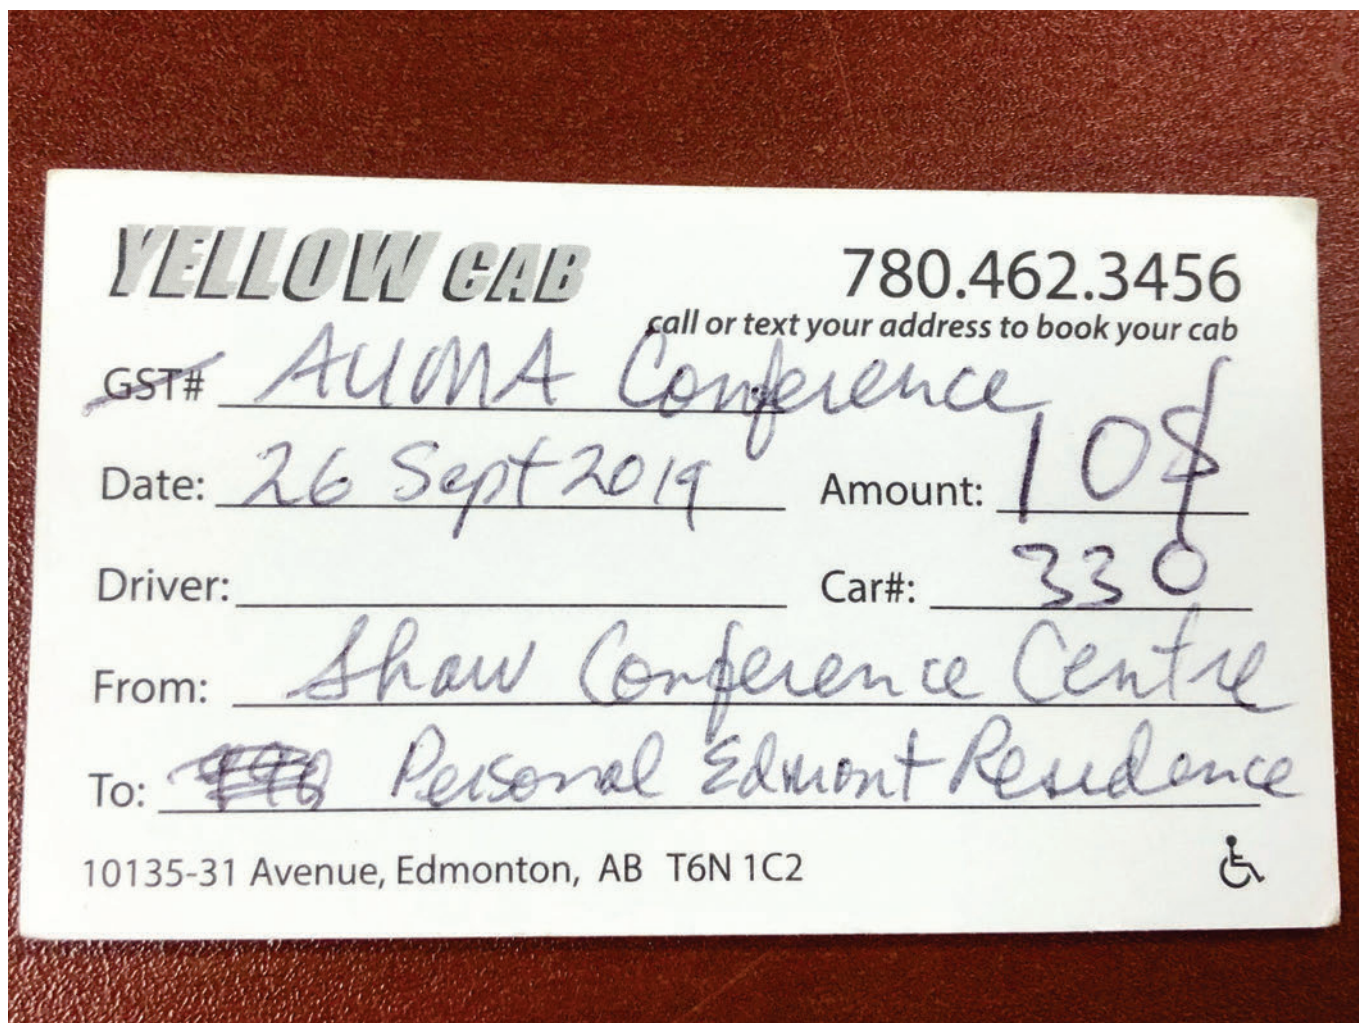 YELLOW CAB 780.462.3456
call or text your address to book your cab
GST# AUMA Conference
Date: 26 Sept 2019 Amount: 10$
Driver: Car#: 330
From: Shaw Conference Centre
To: Personal Edmont Residence
10135-31 Avenue, Edmonton, AB T6N 1C2